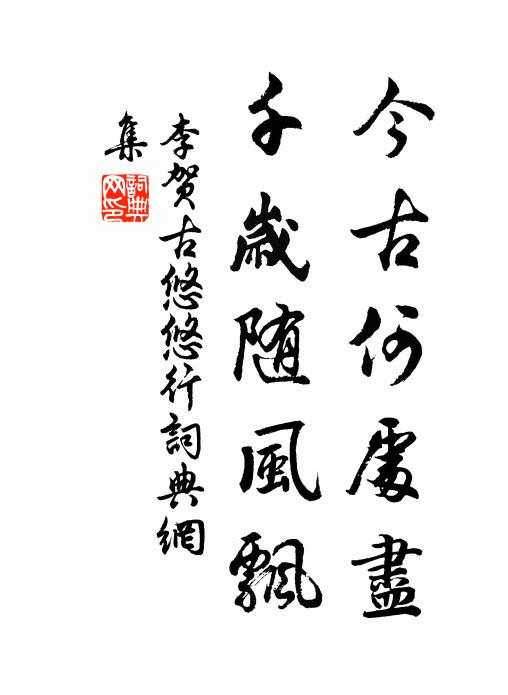 今古何處盡
千歲随風飄
李賀古悠悠行詞典網
集
詞典
网印